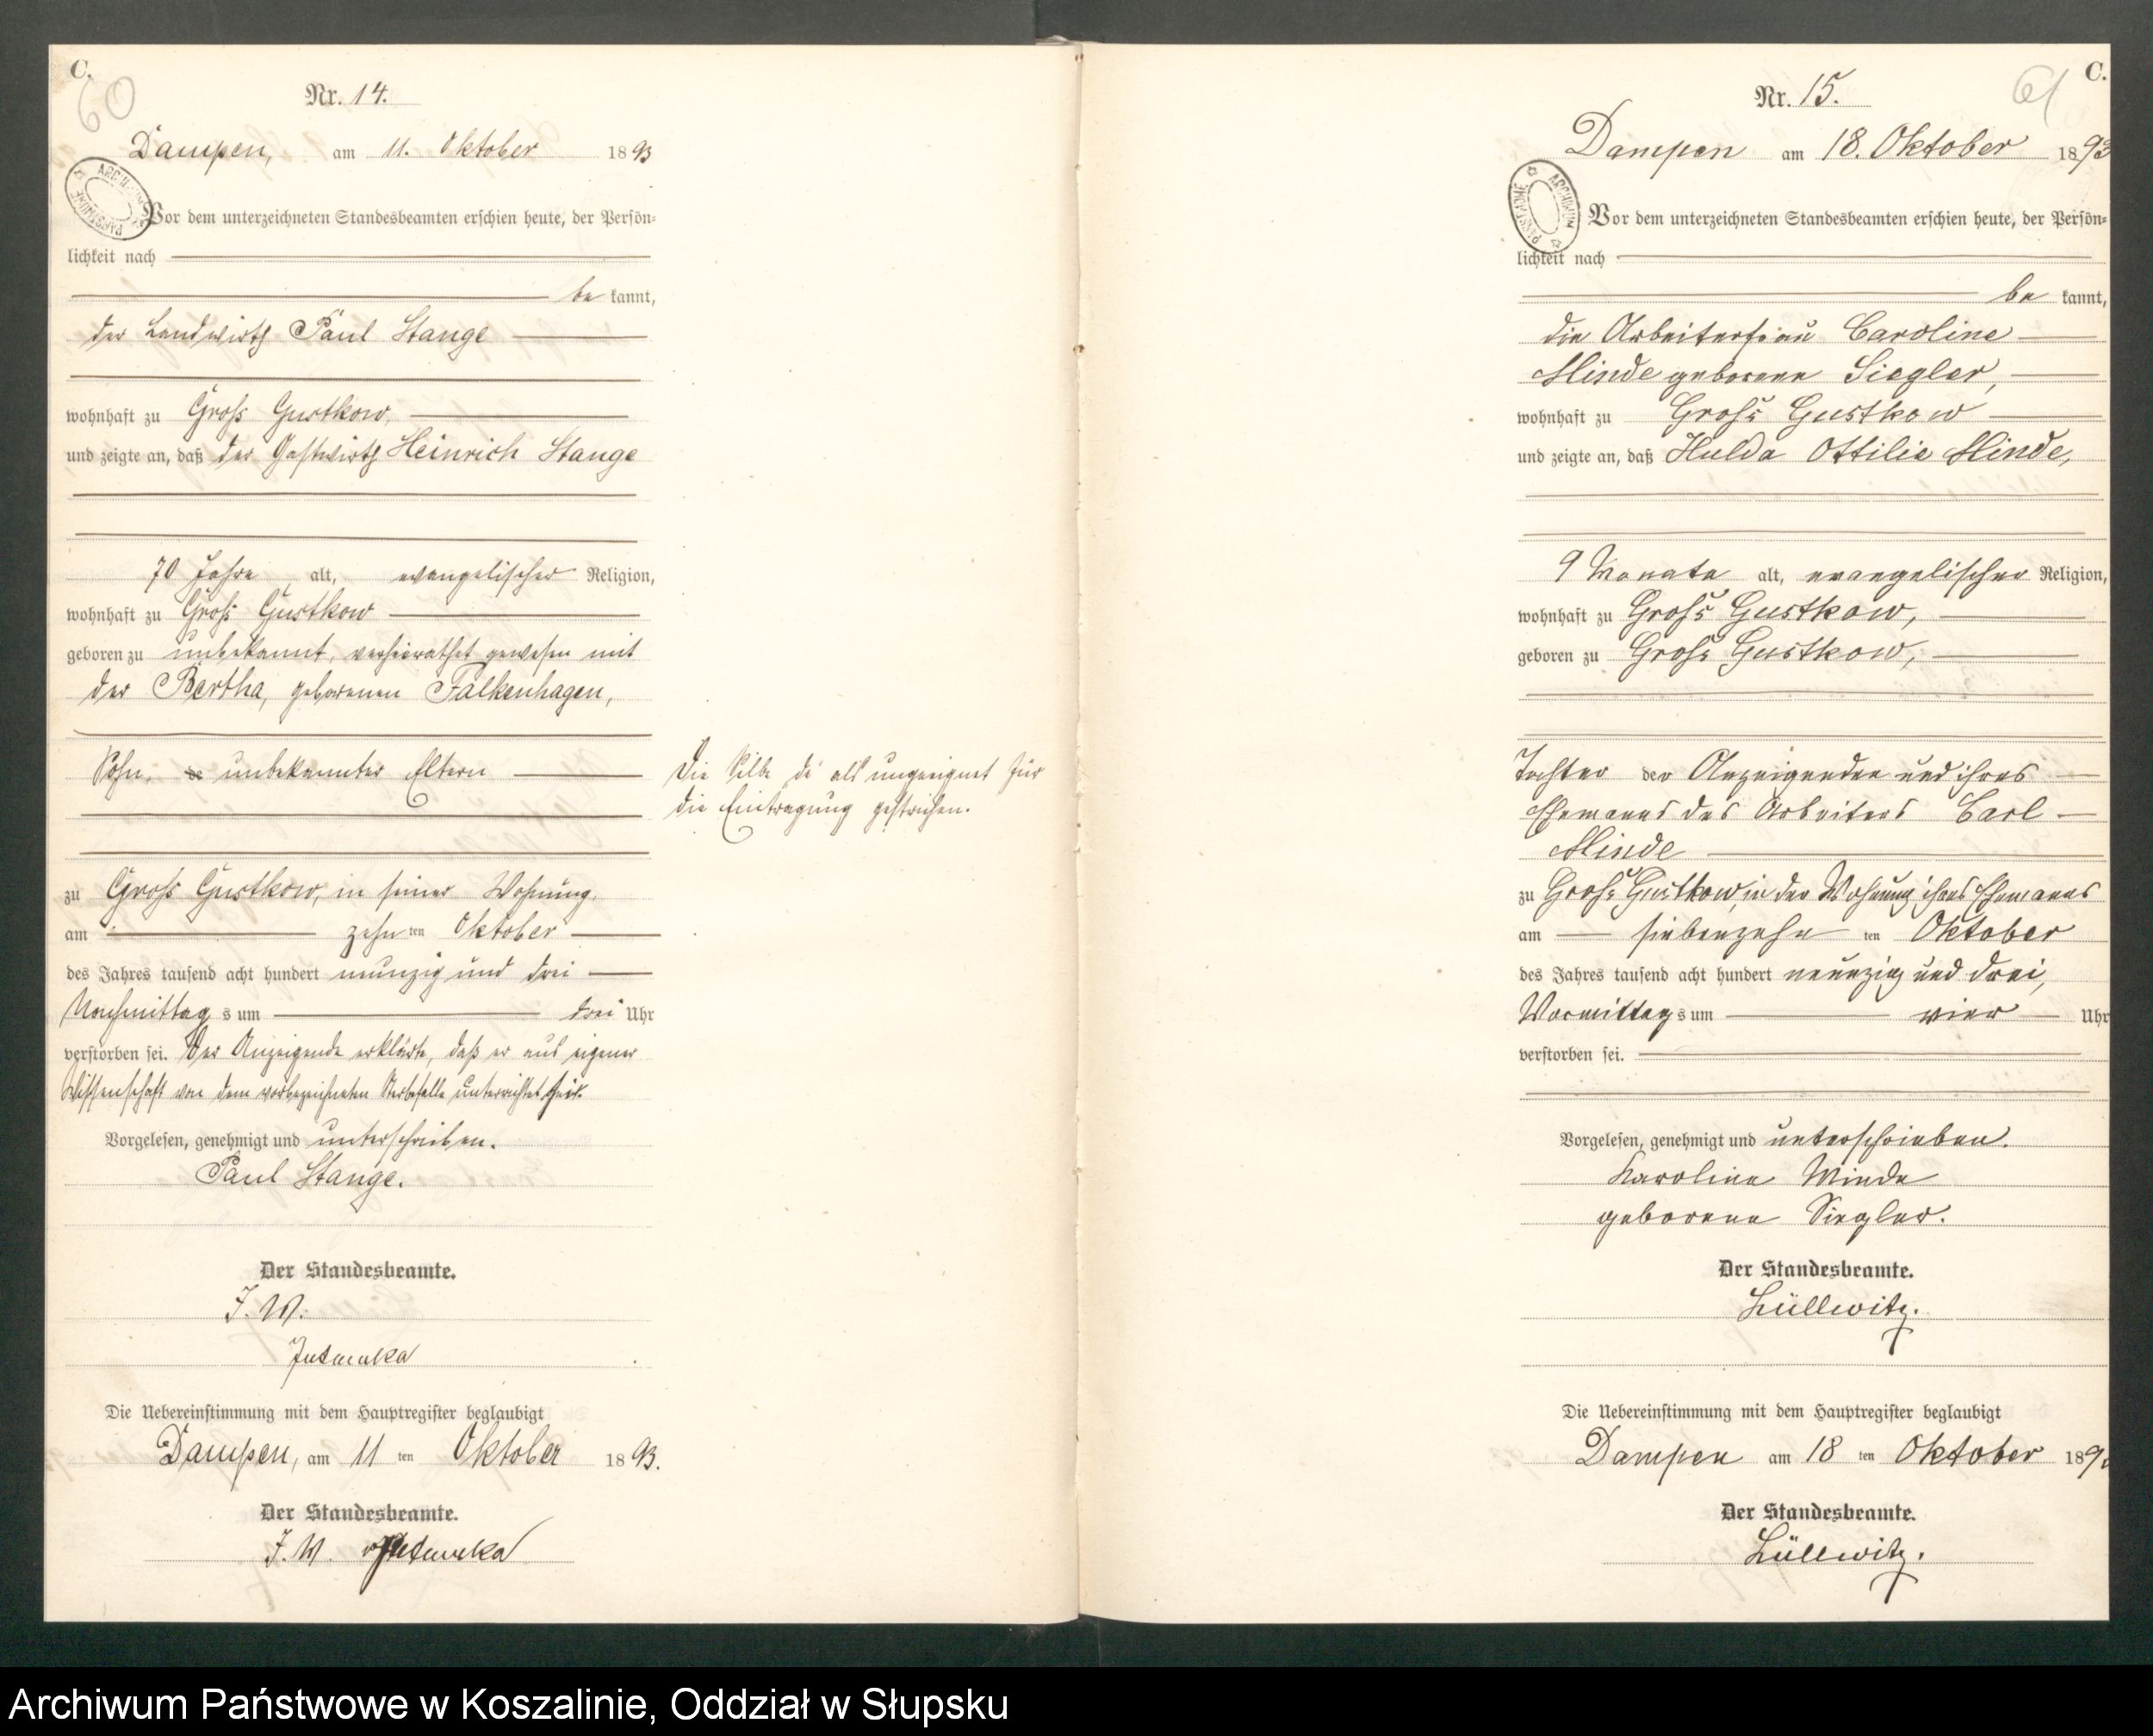 C.
60
Nr. 14.
Dampen, am 11. Oktober 1893
ARCHIWUM PAŃSTWOWE
Vor dem unterzeichneten Standesbeamten erschien heute, der Persön=
lichkeit nach
be kannt,
der Landwirth Paul Stange
wohnhaft zu Groß Gustkow,
und zeigte an, daß der Gastwirth Heinrich Stange
70 Jahre alt, evangelischer Religion,
wohnhaft zu Groß Gustkow
geboren zu unbekannt, verheirathet gewesen mit
der Bertha, geborenen Falkenhagen,
Sohn, de unbekannter Eltern
Die Silbe "de" als ungeeignet für
die Eintragung gestrichen.
zu Groß Gustkow, in seiner Wohnung,
am zehn ten Oktober
des Jahres tausend acht hundert neunzig und drei
Nachmittag s um drei Uhr
verstorben sei. Der Anzeigende erklärte, daß er aus eigener
Wissenschaft von dem vorbezeichneten Sterbefalle unterrichtet sei.
Vorgelesen, genehmigt und unterschrieben.
Paul Stange.
Der Standesbeamte.
J. V.
Die Uebereinstimmung mit dem Hauptregister beglaubigt
Dampen, am 11 ten Oktober 1893.
Der Standesbeamte.
J. V.
C.
61
Nr. 15.
Dampen am 18. Oktober 1893
ARCHIWUM PAŃSTWOWE
Vor dem unterzeichneten Standesbeamten erschien heute, der Persön=
lichkeit nach
be kannt,
die Arbeiterfrau Caroline
Minde geborene Siegler,
wohnhaft zu Groß Gustkow
und zeigte an, daß Hulda Ottilie Minde,
9 Monate alt, evangelischer Religion,
wohnhaft zu Groß Gustkow,
geboren zu Groß Gustkow,
Tochter der Anzeigenden und ihres
Ehemannes des Arbeiters Carl
Minde
zu Groß Gustkow, in der Wohnung ihres Ehemannes
am siebenzehn ten Oktober
des Jahres tausend acht hundert neunzig und drei,
Vormittag s um vier Uhr
verstorben sei.
Vorgelesen, genehmigt und unterschrieben.
Karoline Minde
geborene Siegler.
Der Standesbeamte.
Lüllwitz.
Die Uebereinstimmung mit dem Hauptregister beglaubigt
Dampen am 18 ten Oktober 189
Der Standesbeamte.
Lüllwitz.
Archiwum Państwowe w Koszalinie, Oddział w Słupsku